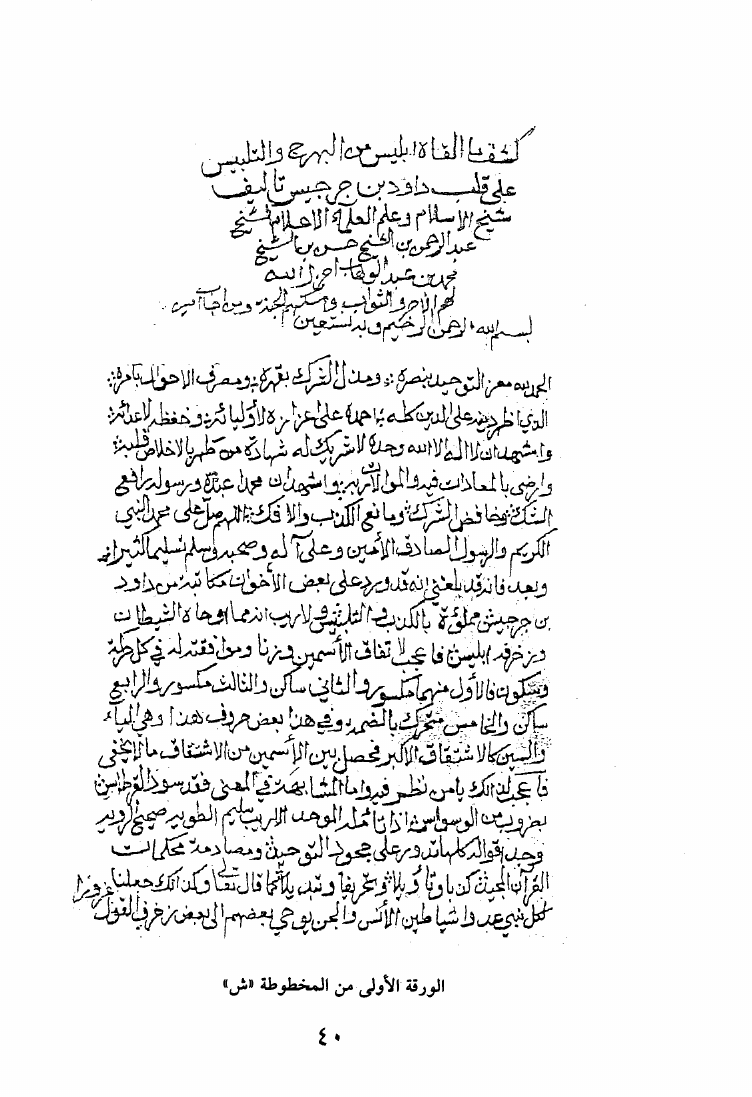 كشف ما القاه ابليس من البهرج والتلبيس
على قلب داود بن جرجيس تاليف
شيخ الاسلام وعلم العلماء الاعلام الشيخ
عبد الرحمن بن الشيخ حسن بن الشيخ
محمد بن عبد الوهاب اجزل الله
لهم الاجر والثواب
بسم الله الرحمن الرحيم وبه نستعين
الحمد لله معز التوحيد بنصره ومذل الشرك بقهره ومصرف الاحوال بامره
الذي اظهر دينه على الدين كله احمده على اعزازه لأوليائه وخفضه لاعدائه
واشهد ان لا اله الا الله وحده لا شريك له شهادة من طهر بالاخلاص قلبه
وارضى بالمعادات فيه والموالات ربه واشهد ان محمدا عبده ورسوله رافع
الشك وخافض الشرك وقامع الكذب والافك اللهم صل على محمد النبي
الكريم والرسول الصادف الأمين وعلى آله وصحبه وسلم تسليما كثيرا
وبعد فانه قد بلغني انه قد ورد على بعض الأخوان مكاتبة من داود
بن جرجيس مملوءة بالكذب والتلبيس ولا ريب انه مما اوحاه الشيطان
وزخرفه ابليس فاعجب لاتفاق الأسمين وزنا وموافقته له في كل حركة
وسكون فالأول منهما مكسور والثاني ساكن والثالث مكسور والرابع
ساكن والخامس متحرك بالضمه وفي هذا بعض حروف هذا وهي الياء
والسين كالاشتقاق الأكبر فحصل بين الإسمين من الاشتقاق ما لا يخفى
فاعجب لذالك يا من نظر فيه واما المشابهة في المعنى فقد سود القرطاس
بضروب من الوسواس اذا تامله الموحد الاريب سليم الطوية صحيح الروية
وجد اقواله كلها تدور على جحود التوحيد ومصادمة محكمات
القرآن المجيد كذبا وتأويلا وتحريفا وتبديلا كما قال تعالى وكذالك جعلنا
لكل نبي عدوا شياطين الأنس والجن يوحي بعضهم الى بعض زخرف القول
الورقة الأولى من المخطوطة «ش»
٤٠